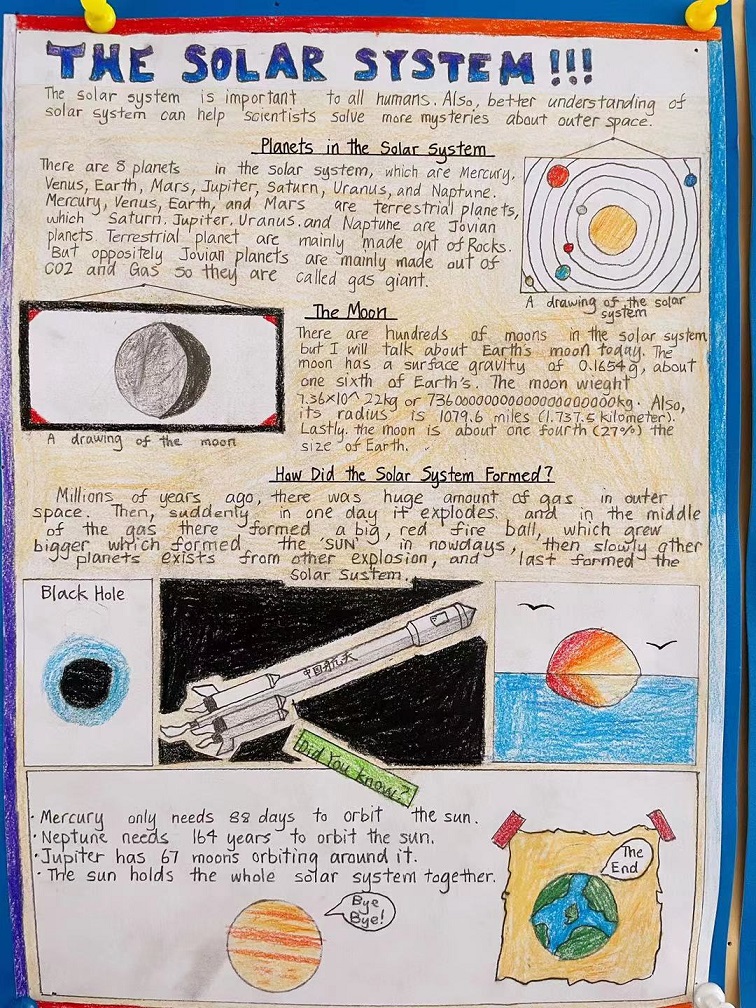 THE SOLAR SYSTEM!!!
The solar system is important to all humans. Also, better understanding of
solar system can help scientists solve more mysteries about outer space.
Planets in the Solar System
There are 8 planets in the solar system, which are Mercury,
Venus, Earth, Mars, Jupiter, Saturn, Uranus, and Naptune.
Mercury, Venus, Earth, and Mars are terrestrial planets,
which Saturn. Jupiter. Uranus.and Naptune are Jovian
planets. Terrestrial planet are mainly made out of Rocks.
But oppositely Jovian planets are mainly made out of
CO2 and Gas so they are called gas giant.
A drawing of the solar
system
The Moon
There are hundreds of moons in the solar system
but I will talk about Earth's moon today. The
moon has a surface gravity of 0.1654g, about
one sixth of Earth's. The moon wieght
7.36×10^22kg or 73600000000000000000000kg. Also,
its radius is 1079.6 miles (1.737.5 kilometer).
Lastly. the moon is about one fourth (27%) the
size of Earth.
A drawing of the moon
How Did the Solar System Formed?
Millions of years ago, there was huge amount of gas in outer
space. Then, suddenly in one day it explodes. and in the middle
of the gas there formed a big, red fire ball, which grew
bigger which formed the 'SUN' in nowdays, then slowly other
planets exists from other explosion, and last formed the
Solar System.
Black Hole
中国航天
Did You know?
· Mercury only needs 88 days to orbit the sun.
· Neptune needs 164 years to orbit the sun.
· Jupiter has 67 moons orbiting around it.
· The sun holds the whole solar system together.
The
End
Bye
Bye!